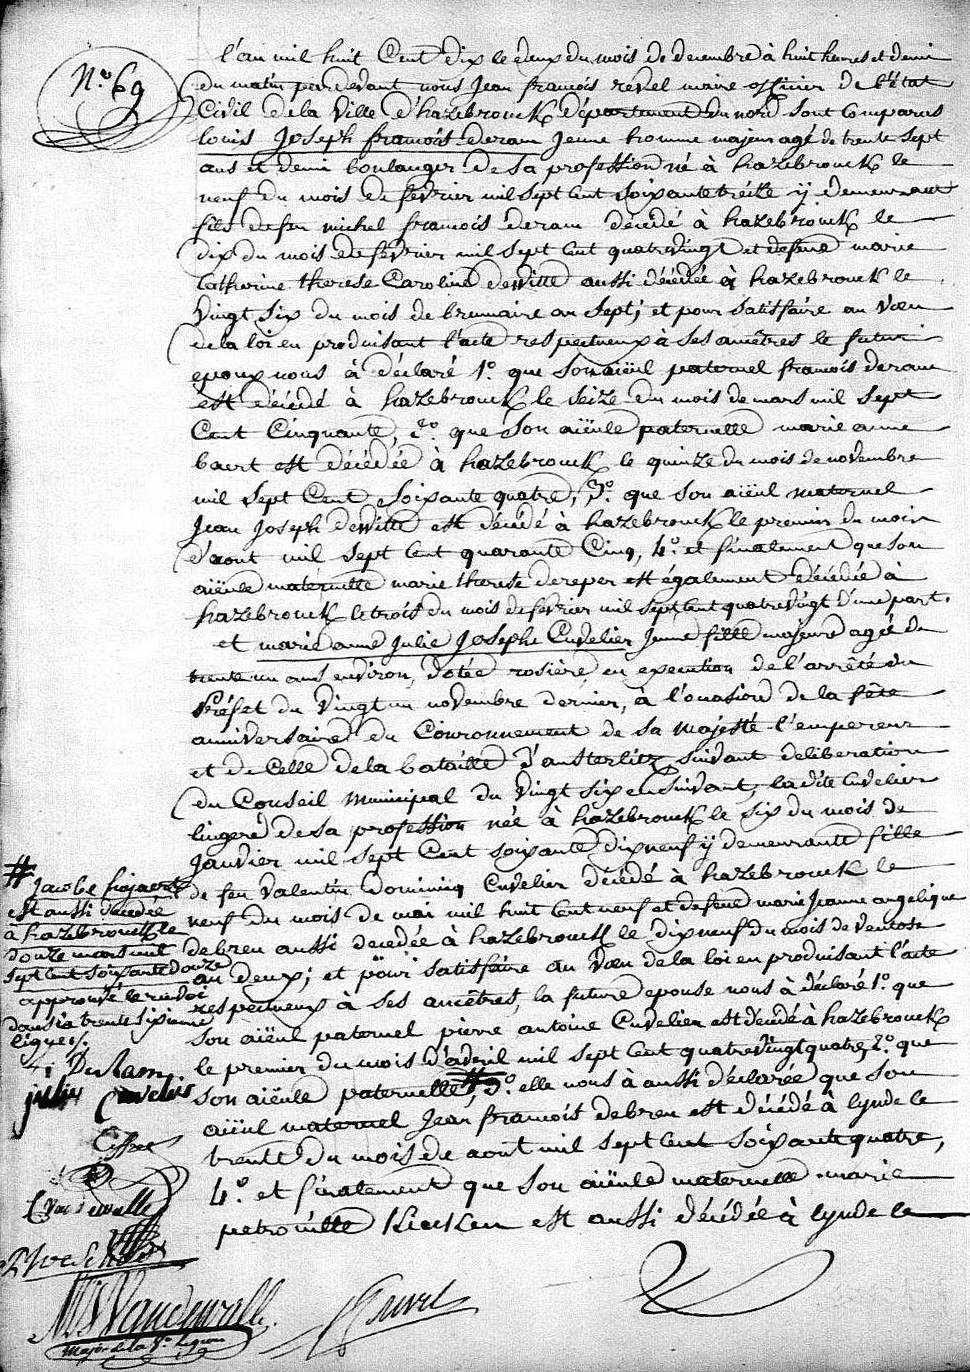 N.o 69
l'an mil huit Cent dix le deux du mois de decembre à huit heures et demi
du matin pardevant nous Jean francois revel maire officier de l'état
Civil de la Ville d'hazebrouck département du nord sont comparus
louis Joseph francois deram jeune homme majeur agé de trente sept
ans et demi boulanger de sa profession né à hazebrouck le
neuf du mois de fevrier mil sept cent soixante treize y demeurant
fils de feu michel francois deram décédé à hazebrouck le
dix du mois de fevrier mil sept cent quatrevingt et defunte marie
Catherine therese Caroline dewitte aussi décédée à hazebrouck le
Vingt six du mois de brumaire an sept; et pour satisfaire au vœu
de la loi en produisant l'acte respectueux à ses ancêtres le futur
epoux nous à déclaré 1.o que son aïeul paternel francois deram
est décédé à hazebrouck le seize du mois de mars mil sept
Cent Cinquante, 2.o que son aïeule paternelle marie anne
baert est décédée à hazebrouck le quinze du mois de novembre
mil sept Cent soixante quatre, 3.o que son aïeul maternel
Jean Joseph dewitte est décédé à hazebrouck le premier du mois
d'aout mil sept cent quarante Cinq, 4.o et finalement que son
aïeule maternelle marie therese dereper est également décédée à
hazebrouck le trois du mois de fevrier mil sept cent quatrevingt d'une part.
et marie anne Julie Josephe Cuvelier Jeune fille majeure agée de
trente un ans environ, dotée rosière en execution de l'arrêté du
Préfet du Vingt un novembre dernier, à l'occasion de la fête
anniversaire du Couronnement de sa majesté l'empereur
et de Celle de la bataille d'austerlitz suivant deliberation
du Conseil municipal du Vingt six ensuivant, la dite Cuvelier
lingere de sa profession née à hazebrouck le six du mois de
Janvier mil sept Cent soixante dixneuf y demeurante fille
de feu Valentin Dominiq Cuvelier décédé à hazebrouck le
neuf du mois de mai mil huit cent neuf et defunte marie Jeanne angelique
debreu aussi decedée à hazebrouck le dixneuf du mois de Ventose
an deux; et pour satisfaire au vœu de la loi en produisant l'acte
respectueux à ses ancêtres, la future epouse nous à déclaré 1.o que
son aïeul paternel pierre antoine Cuvelier est décédé à hazebrouck
le premier du mois d'avril mil sept cent quatrevingt quatre, 2.o que
son aïeule paternelle #, 3.o elle nous à aussi déclarée que son
aïeul maternel Jean francois debreu est décédé à lynde le
trente du mois de aout mil sept cent soixante quatre,
4.o et finalement que son aïeule maternelle marie
petronille Kieken est aussi décédée à lynde le
# Jacobe
est aussi decedée
à hazebrouck le
douze mars mil
sept cent soixante douze
approuvé le renvoi
dans la trente sixieme
ligne
Deram
julie Cuvelier
C Vandewalle
Vandewalle
Major de la
Revel